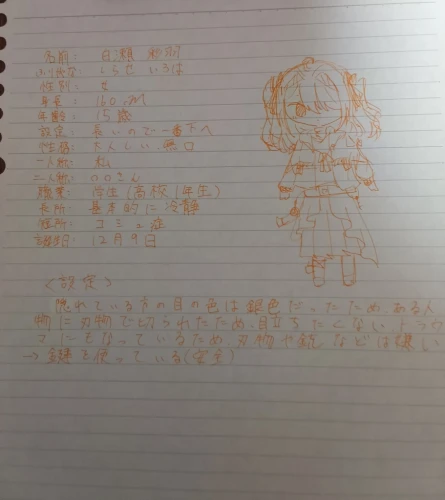 名前: 白瀬 彩羽
ふりがな: しらせ いろは
性別: 女
身長: 160cm
年齢: 15歳
設定: 長いので一番下へ
性格: 大人しい 無口
一人称: 私
二人称: 〇〇さん
職業: 学生(高校1年生)
長所: 基本的に冷静
短所: コミュ症
誕生日: 12月9日
<設定>
隠れている方の目の色は銀色だったためある人
物に刃物で切られたため、目立ちたくない トラウ
マにもなっているため、刃物や銃などは嫌い
→ を使っている(安全)